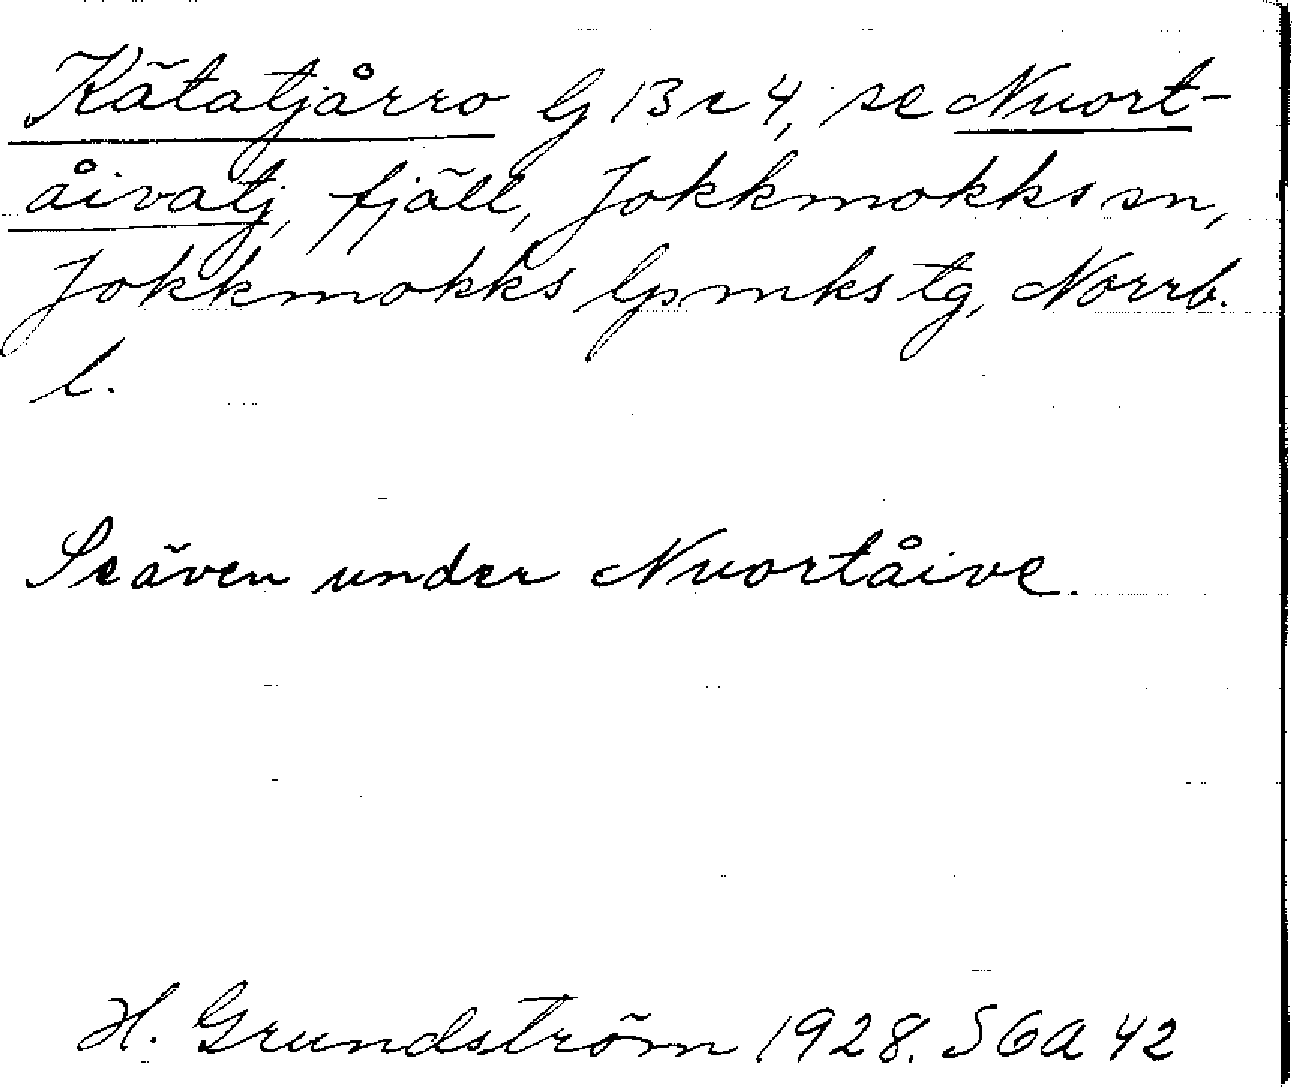 Kätatjårro lG 13 r 4, se Nuort-
åivatj, fjäll, Jokkmokks sn,
Jokkmokks lpmks tg, Norrb.
l.
Se även under Nuortåive.
H. Grundström 1928. S6a 42